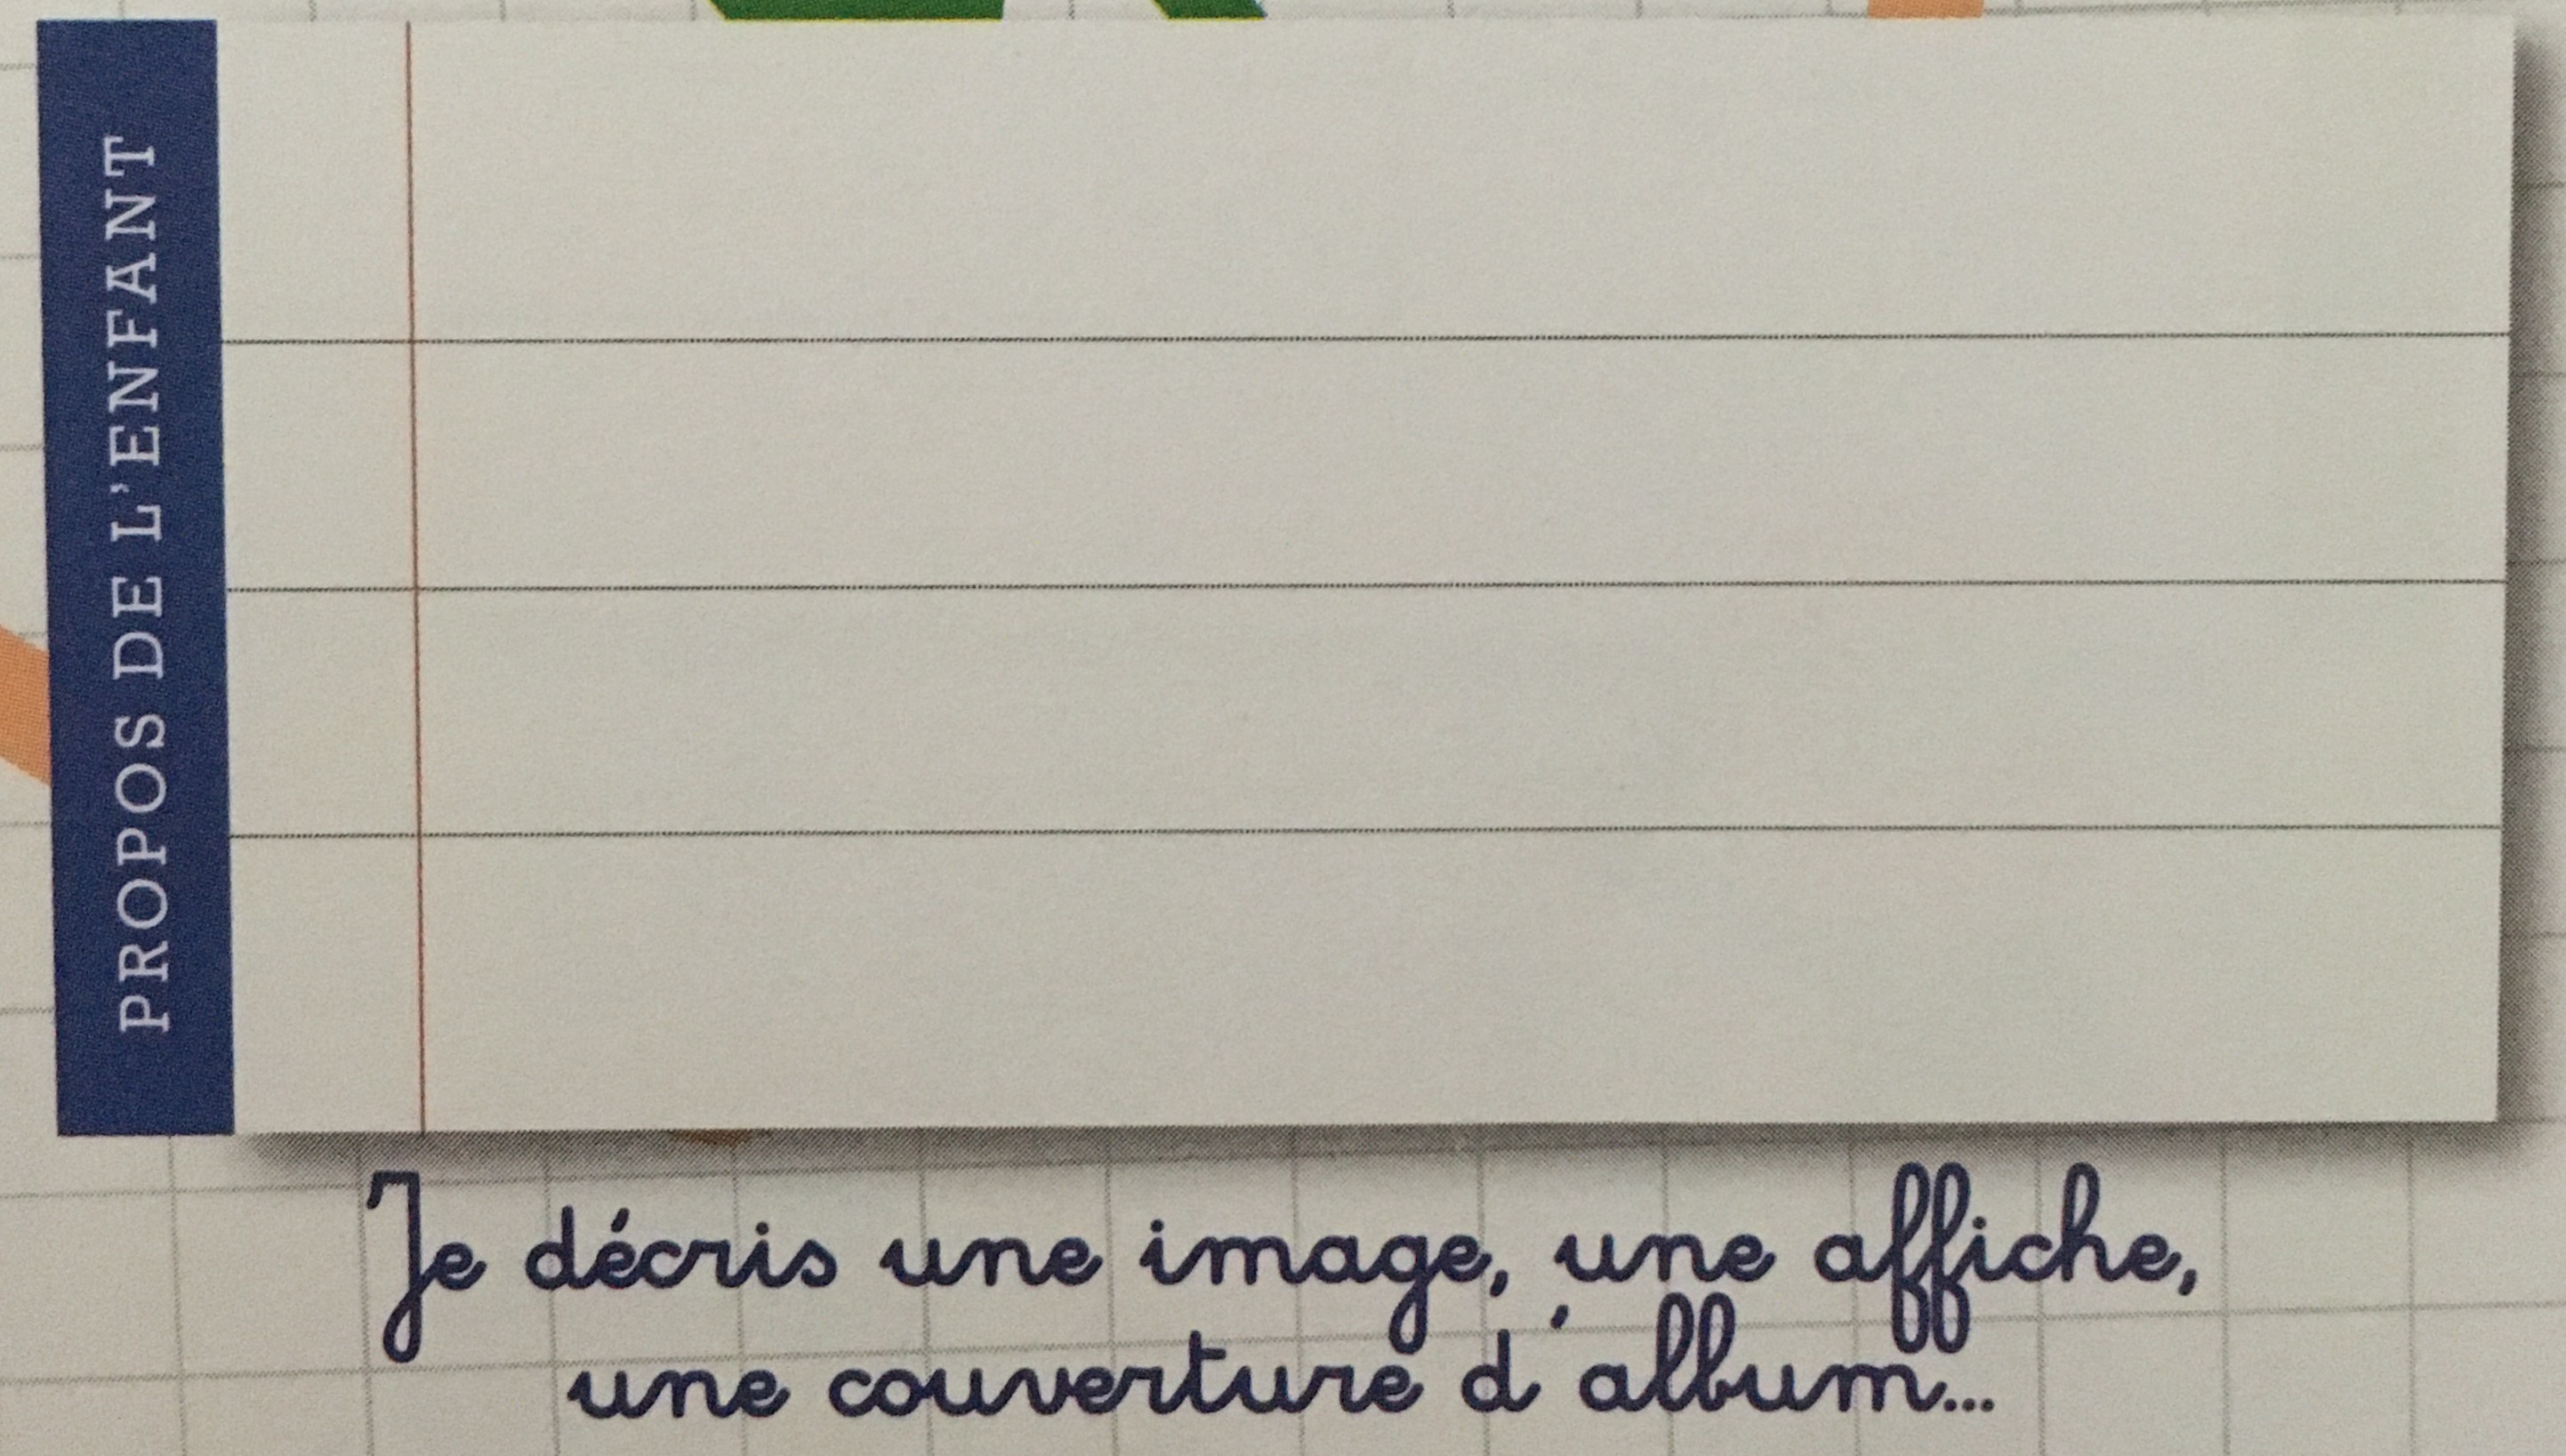 PROPOS DE L'ENFANT
Je décris une image, une affiche,
une couverture d'album...